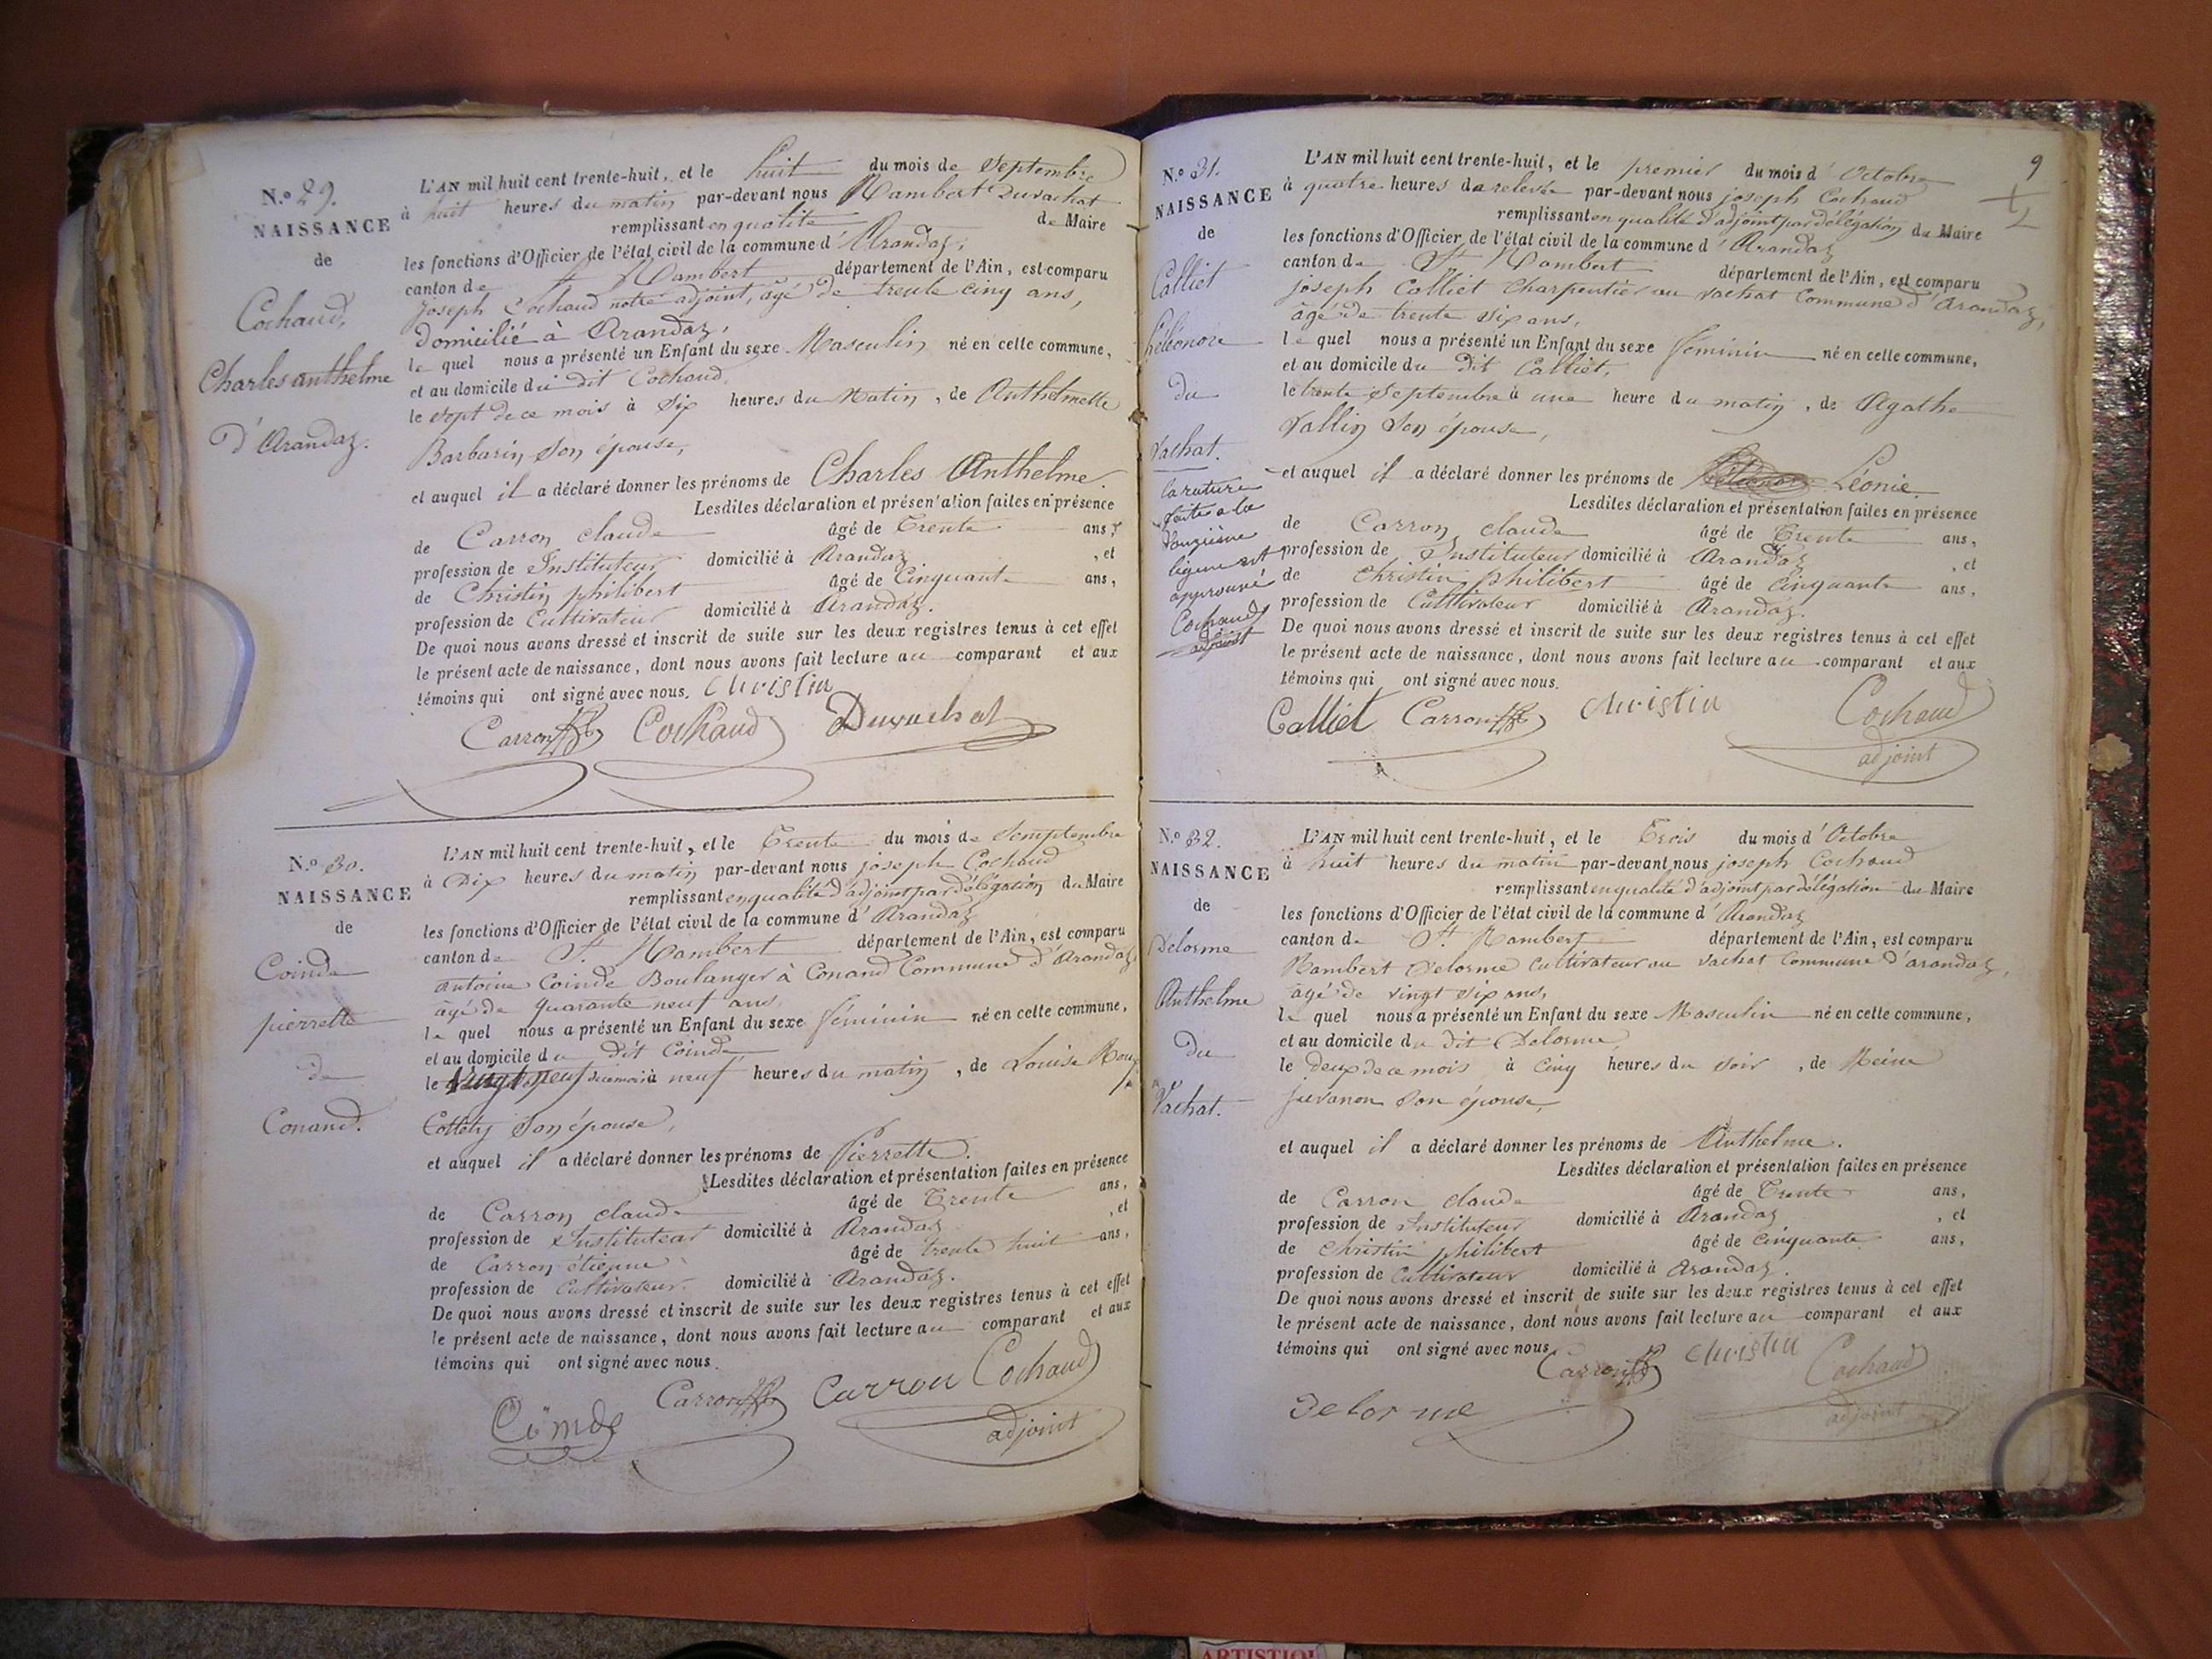 N.o 29.
NAISSANCE
de
Cochaud,
Charles anthelme
d'Arandaz.
L'AN mil huit cent trente-huit, et le huit du mois de Septembre
à huit heures du matin par-devant nous Rambert Duvachat
remplissant en qualité de Maire
les fonctions d'Officier de l'état civil de la commune d'Arandaz,
canton de St Rambert département de l'Ain, est comparu
joseph Cochaud notre adjoint, âgé de trente cinq ans,
domicilié à Arandaz,
le quel nous a présenté un Enfant du sexe Masculin né en cette commune,
et au domicile du dit Cochaud,
le sept de ce mois à Six heures du Matin, de Anthelmette
Barbarin Son épouse,
et auquel il a déclaré donner les prénoms de Charles Anthelme.
Lesdites déclaration et présentation faites en présence
de Carron claude âgé de Trente ans,
profession de Instituteur domicilié à Arandaz, et
de Christin philibert âgé de Cinquante ans,
profession de Cultivateur domicilié à Arandaz.
De quoi nous avons dressé et inscrit de suite sur les deux registres tenus à cet effet
le présent acte de naissance, dont nous avons fait lecture au comparant et aux
témoins qui ont signé avec nous. Christin
Carron Cochaud Duvachat
N.o 30.
NAISSANCE
de
Coinde
pierrette
de
Conand.
L'AN mil huit cent trente-huit, et le Trente du mois de Semptembre
à Dix heures du matin par-devant nous joseph Cochaud
remplissant en qualité d'adjoint par délégation du Maire
les fonctions d'Officier de l'état civil de la commune d'Arandaz
canton de St. Rambert département de l'Ain, est comparu
antoine Coinde Boulanger à Conand Commune d'Arandaz,
âgé de quarante neuf ans,
le quel nous a présenté un Enfant du sexe féminin né en cette commune,
et au domicile du dit Coinde,
le Vingt neuf de ce mois à neuf heures du matin, de Louise
son épouse,
et auquel il a déclaré donner les prénoms de Pierrette.
Lesdites déclaration et présentation faites en présence
de Carron claude âgé de Trente ans,
profession de Instituteur domicilié à Arandaz, et
de Carron étienne âgé de trente huit ans,
profession de Cultivateur domicilié à Arandaz.
De quoi nous avons dressé et inscrit de suite sur les deux registres tenus à cet effet
le présent acte de naissance, dont nous avons fait lecture au comparant et aux
témoins qui ont signé avec nous.
Coinde Carron Carron Cochaud
adjoint
9
N.o 31.
NAISSANCE
de
Calliet
Héléonore
du
Vachat.
la rature
faite a la
ligne est
approuvé
Cochaud
adjoint
L'AN mil huit cent trente-huit, et le premier du mois d'Octobre
à quatre heures de relevée par-devant nous joseph Cochaud
remplissant en qualité d'adjoint par délégation du Maire
les fonctions d'Officier de l'état civil de la commune d'Arandaz
canton de St Rambert département de l'Ain, est comparu
joseph Calliet Charpentier au vachat Commune d'Arandaz,
âgé de trente six ans,
le quel nous a présenté un Enfant du sexe féminin né en cette commune,
et au domicile du dit Calliet,
le trente Septembre à une heure du matin, de Agathe
Vallin Son épouse,
et auquel il a déclaré donner les prénoms de Léonie
Lesdites déclaration et présentation faites en présence
de Carron claude âgé de Trente ans,
profession de Instituteur domicilié à Arandaz, et
de christin philibert âgé de cinquante ans,
profession de Cultivateur domicilié à Arandaz.
De quoi nous avons dressé et inscrit de suite sur les deux registres tenus à cet effet
le présent acte de naissance, dont nous avons fait lecture au comparant et aux
témoins qui ont signé avec nous.
Calliet Carron christin Cochaud
adjoint
N.o 32.
NAISSANCE
de
Delorme
Anthelme
du
Vachat.
L'AN mil huit cent trente-huit, et le Trois du mois d'Octobre
à huit heures du matin par-devant nous joseph Cochaud
remplissant en qualité d'adjoint par délégation du Maire
les fonctions d'Officier de l'état civil de la commune d'Arandaz
canton de St. Rambert département de l'Ain, est comparu
Rambert Delorme cultivateur au vachat Commune d'arandaz,
âgé de vingt six ans,
le quel nous a présenté un Enfant du sexe Masculin né en cette commune,
et au domicile du dit Delorme
le deux de ce mois à cinq heures du soir, de Reine
juvanon Son épouse,
et auquel il a déclaré donner les prénoms de Anthelme.
Lesdites déclaration et présentation faites en présence
de Carron claude âgé de Trente ans,
profession de Instituteur domicilié à Arandaz, et
de christin philibert âgé de cinquante ans,
profession de Cultivateur domicilié à Arandaz.
De quoi nous avons dressé et inscrit de suite sur les deux registres tenus à cet effet
le présent acte de naissance, dont nous avons fait lecture au comparant et aux
témoins qui ont signé avec nous.
Carron christin Cochaud
Delorme adjoint